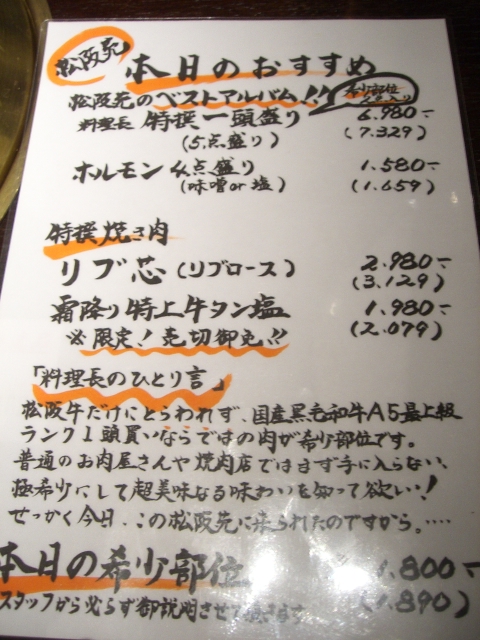 松阪苑
本日のおすすめ
松阪苑のベストアルバム!!
希少部位
料理長 特撰一頭盛り 6.980-
(5点盛り) (7.329)
ホルモン4点盛り 1.580-
(味噌or塩) (1.659)
特撰焼き肉
リブ芯(リブロース) 2.980-
(3.129)
霜降り特上牛タン塩 1.980-
(2.079)
※限定!売切御免!!
「料理長のひとり言」
松阪牛だけにとらわれず、国産黒毛和牛A5最上級
ランク1頭買いならではの肉が希少部位です。
普通のお肉屋さんや焼肉店ではまず手に入らない、
極希少にして超美味なる味わいを知って欲しい!
せっかく今日、この松阪苑に来られたのですから。....
本日の希少部位 1.800-
スタッフから必らず御説明させて (1.890)